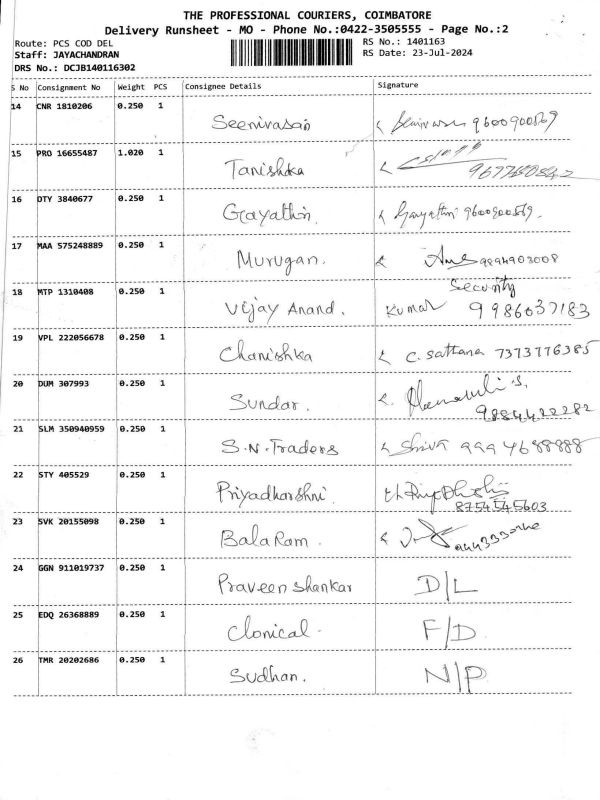 THE PROFESSIONAL COURIERS, COIMBATORE
Delivery Runsheet - MO - Phone No.:0422-3505555 - Page No.:2
Route: PCS COD DEL
Staff: JAYACHANDRAN
DRS No.: DCJB140116302
RS No.: 1401163
RS Date: 23-Jul-2024
S No Consignment No Weight PCS Consignee Details Signature
14 CNR 1810206 0.250 1 Seenivasan 9600900569
15 PRO 16655487 1.020 1 Tanishka
16 DTY 3840677 0.250 1 Gayathiri Gayathri 9600900569.
17 MAA 575248889 0.250 1 Murugan. 9894903008
18 MTP 1310408 0.250 1 Vijay Anand. Security
Kumar 9986037183
19 VPL 222056678 0.250 1 Chanishka C. Sattana 7373776385
20 DUM 307993 0.250 1 Sundar.
9884422282
21 SLM 350940959 0.250 1 S.N. Traders Shiva 9994688888
22 STY 405529 0.250 1 Priyadharshni
8754545603
23 SVK 20155098 0.250 1 BalaRam.
24 GGN 911019737 0.250 1 Praveen Shankar D/L
25 EDQ 26368889 0.250 1 Clonical. F/D.
26 TMR 20202686 0.250 1 Sudhan. N/P